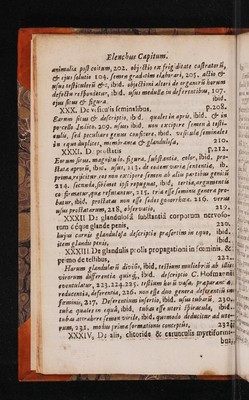 Elenchus Capitum.
animalia post coitum, 202. objectio ex frigiditate castratorū,
& ejus solutio 204. semen gradatim elaborari, 205. actio &
usus testiculorū &c, ibid. objectioni alteri de organorū horum
defectu respondetur, ibid. usus medulla in deferentibus, 207.
ejus situs & figura. ibid.
XXX. De vesiculis seminalibus, p.208.
Earum situs & descriptio, ib d. quales in apris, ibid. & in
porcello Indico. 209. usus ibid. non excipere semen à testi-
culis, sed peculiare genus conficere, ibid. vesicula seminales
in equis duplices, membranea & glandulosa, 210.
XXXI. De prostatis p.212.
Earum situs, magnitudo, figura, substantia, color, ibid. pro-
stata aprorū, ibid. usus, 213. de eorum variis sententia, ib.
prima, rejicitur eos non excipere semen ab aliis partibus genitū
214. secunda, ibidem refutatur, ibid. tertia, argumentis
confirmatur, qua refutantur, 215. tria esse seminis genera pro-
batur, ibid. prostatas non esse sedes gonorrhœa. 216. verus
usus prostatarum, 218, observatio, 219.
XXXII De glandulosa substantia corporum nervoso-
rum equi glande penis, 220.
hujus carnis glandulosa descriptio præsertim in equo, ibid.
item glandis penis, ibid.
XXXIII De glandulis prolis propagationi in fœminis. &
primo de testibus, 222.
Harum glandularū divisio, ibid. testium muliebriū ab illis
virorum differentia quinq, ibid. descriptio C. Hofmanni
eventulatur, 223. 224. 225. testium horū vasa. præparantia,
redeuntia, deferentia, 226. non esse duo genera deferentiū in
fœminis, 217. Deferentium insertio, ibid. usus tubarū. 230.
tuba quales in equâ, ibid. tuba esse uteri spiracula, ibid.
tubas attrahere semen virile, ibid. quomodo deducitur ad ute-
rum, 231. modus prima formationis conceptus, 232
XXXIV. De aiis, clitoride & carunculis myrtiformi-
bus,